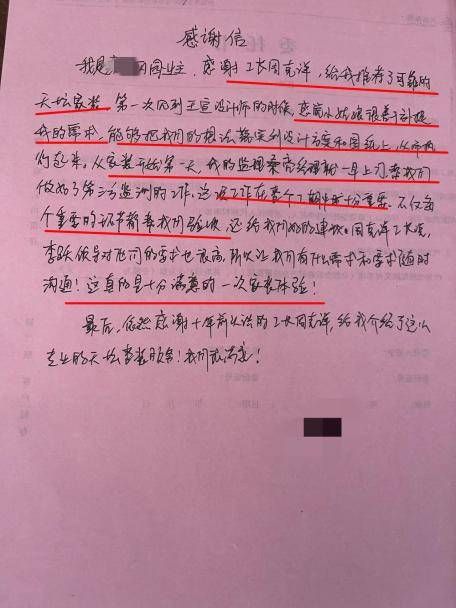 感谢信
我是 园业主，感谢工长周克祥，给我推荐了可靠的
天坛家装。第一次见到王宣设计师的时候，感觉小姑娘很善于捕捉
我的需求，能够把我们的想法落实到设计方案和图纸上，从而
约起来。从家装开始第一天，我的监理 经理都一早上门帮我们
做好了第三方监测的工作。这 工作在整个工期中十分重要。不仅每
个重要的环节都帮我们验收，还给我们 的建议。周克祥工长及
李跃领导对他们的要求也很高，所以让我们有什么需求和要求随时
沟通！这真的是十分满意的一次家装体验！
最后，依然感谢十年前认识的工长周克祥，给我介绍了这么
专业的天坛整装服务！我们很满意！